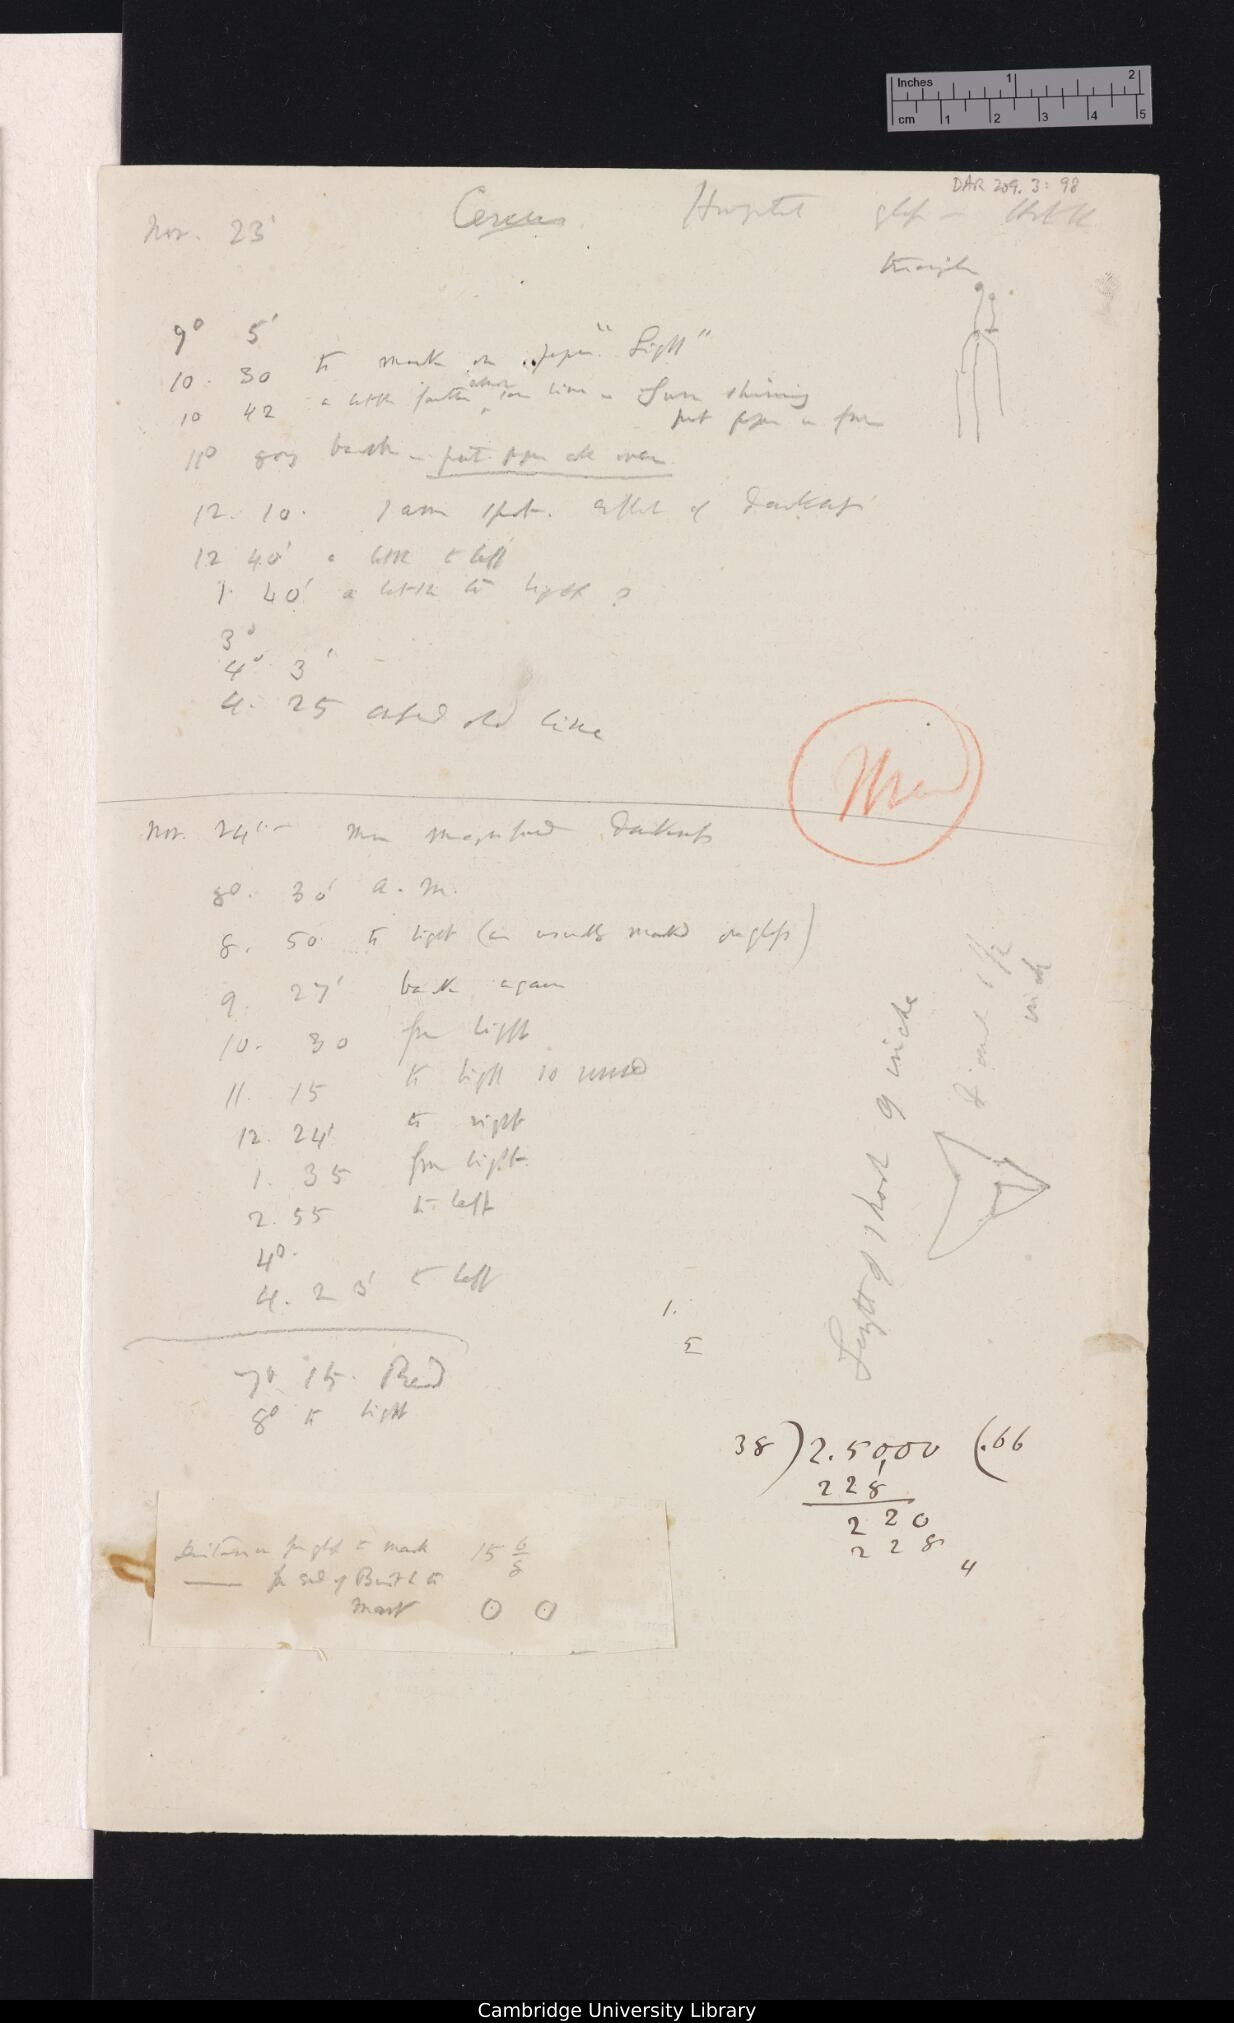 Inches 1 2
cm 1 2 3 4 5
DAR 209.3: 98
Nov. 23' Cereus Horizontal glass
triangle
9° 5'
10. 30 to mark on paper "Light"
10 42 a little farther than line Sun shining
put paper in front
11° going back – put paper all over
12. 10. same spot. effect of Darkness
12 40' a little to left
1. 40' a little to light ?
3°
4° 3'
4. 25 old line
Nov. 24 magnified Darkness
8°. 30' a. m.
8. 50 to light (as usually marked on glass)
9. 27' back again
10. 30 from light
11. 15 to light
12. 24' to right
1. 35 from light
2. 55 to left
4°.
4. 23' to left
7° 15. Read
8° to light
1.
5
Length of shoot 9 inches
Diam 1 1/2
inch
38 ) 2.5000 (.66
228
220
228
4
Distance from glass to mark 15 6/8
—— from end of to
mark 0 0
Cambridge University Library